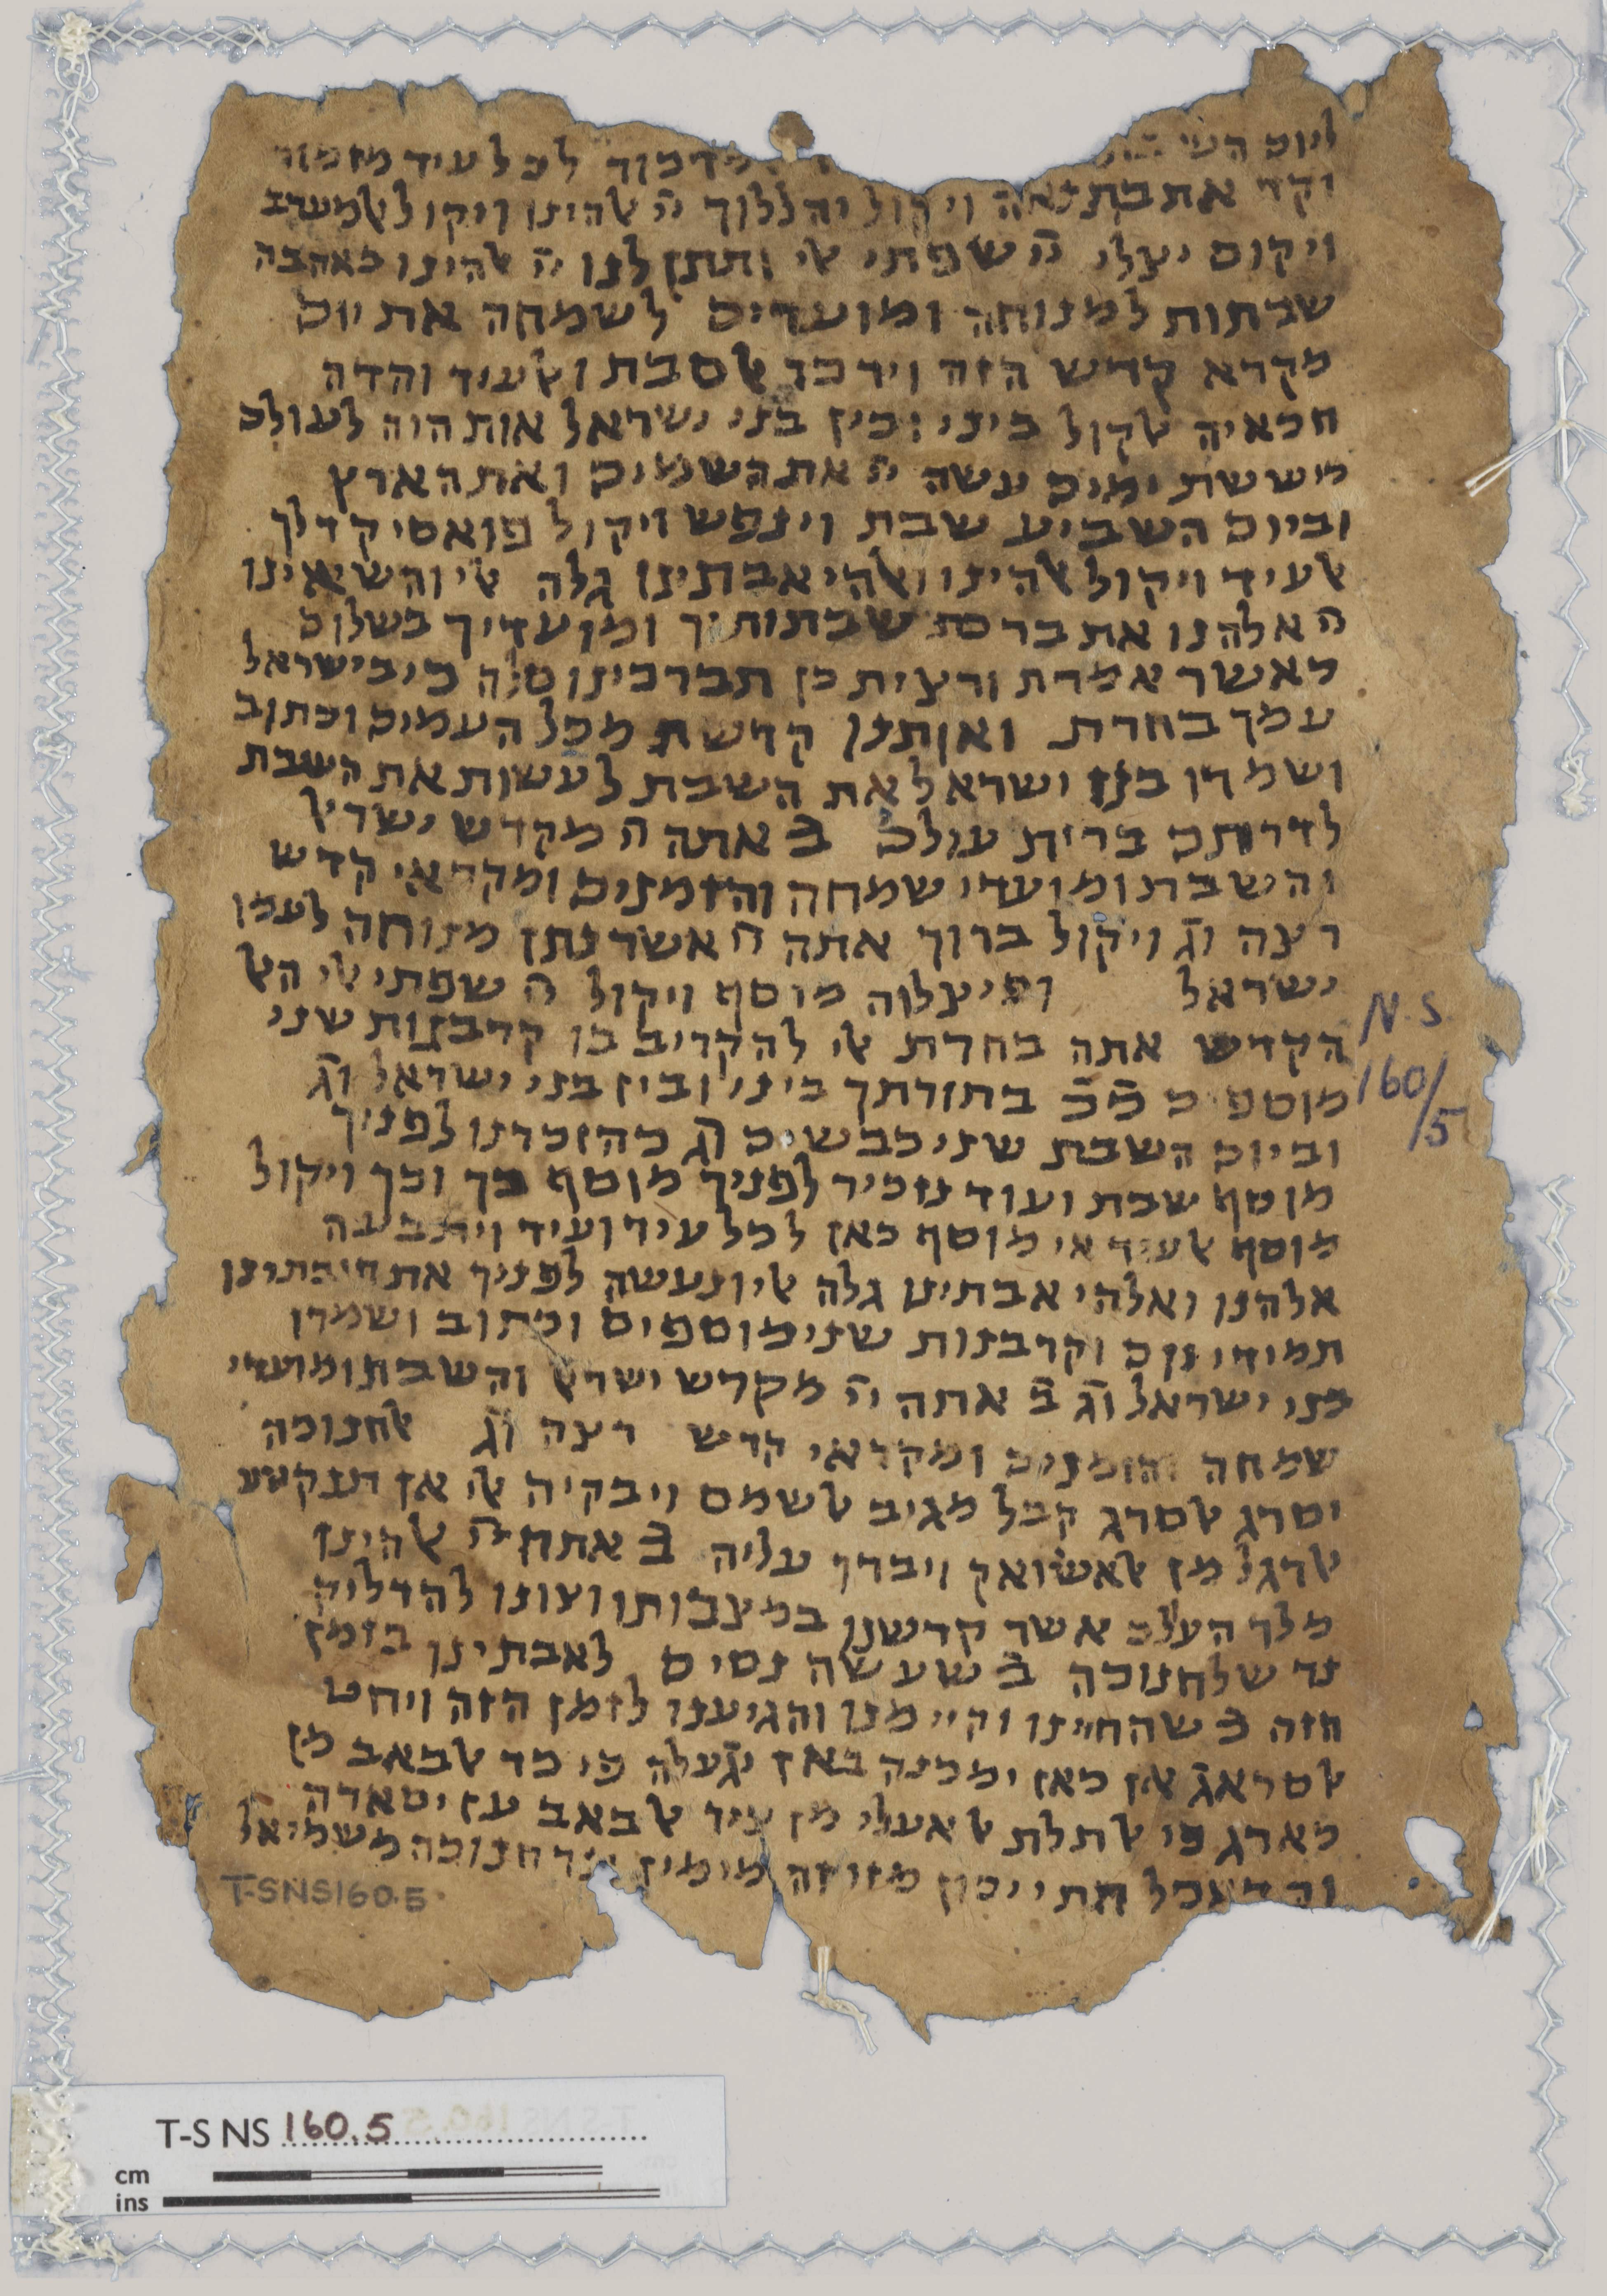 ליום השי מזמור לכל עיד מזמור
וקד ויקול יהללוך יי אלהינו ויקול אלמערב
ויקום יצלי יי שפתי אל ותתן לנו יי אלהינו באהבה
שבתות למנוחה ומועדים לשמחה את יום
מקרא קדש הזה וידכר אלסבת ואלעיד והדה
חכאיה אלקול ביני ובין בני ישראל אות היה לעולם
כי ששת ימים עשה יי את השמים ואת הארץ
וביום השביע שבת וינפש ויקול פואסיק דלך
אלעיד ויקול אלהינו ואלהי אבתינו גלה אלי והשיאינו
יי אלהנו את ברכת שבתותיך ומועדיך בשלום
כאשר אמרת ורצית כן תברכינו סלה כי בישראל
עמך בחרת ואותנו קדשת מכל העמים וכתוב
ושמרו בני ישראל את השבת לעשות את השבת
לדרותם ברית עולם ב אתה יי מקדש ישראל
והשבת ומועדי שמחה והזמנים ומקראי קדש
רצה וג ויקול ברוך אתה יי אשר נתן מנוחה לעמו
ישראל ופי צלוה מוסף ויקול יי שפתי אלי האל
הקדש אתה בחרת אלי להקריב בו קרבנות שני
מוספים ככ בתורתך ביני ובין בני ישראל וג
וביום השבת שני כבשים וג כהזכרנו לפניך
מוסף שבת ועוד נזכיר לפניך מוסף כך וכך ויקול
מוסף אלעיד אי מוסף כאן לכל עיד ועיד ויתבעה
אלהנו ואלהי אבתינו גלה אלי ונעשה לפניך את חובתינו
תמידי יום וקרבנות שני מוספים וכתוב ושמרו
בני ישראל וג ב אתה יי מקדש ישראל והשבת ומועדי
שמחה והזמנים ומקראי קדש רצה וג אלחנוכה
יסרג אלסרג קבל מגיב אלשמס ויבקיה אלי אן תנקטע
אלרגל מן אלאשואק ויברך עליה ב אתה יי אלהינו
מלך העולם אשר קדשנו במצבותו וצונו להדליק
נר שלחנוכה ב שעשה נסים לאבתינו בזמן
הזה ב שהחיינו וקיימנו והגיענו לזמן הזה ויחט
אלסראג אן כאן ימכנה באן יגעלה פי חד אלבאב מן
כארג פי אלתלת אלאעלי מן ציר אלבאב ען יסארה
אלדאכל חתי יכון מזוזה מימין ונר חנוכה משמיאל
N.S.
160/5
T-SNS160.5
T-S NS 160.5
cm
ins